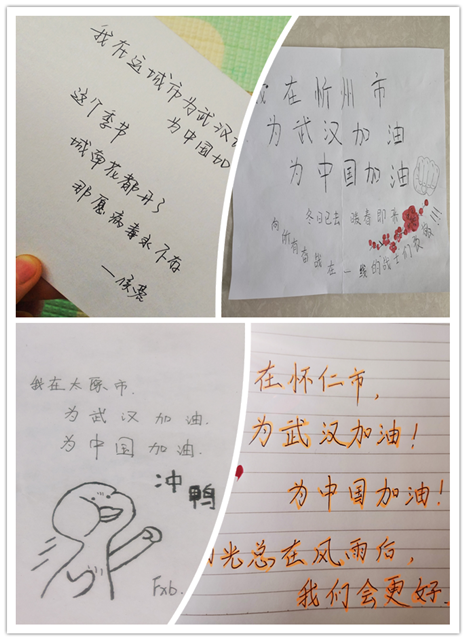 我在运城市为武汉
为中国加
这个季节
城南花都开了
那愿病毒永不存
在忻州市
为武汉加油
为中国加油
冬日已去 暖春即来
向所有奋战在一线的战士们致敬!!!
我在太原市.
为武汉加油.
为中国加油.
冲鸭
Fxb.
在怀仁市,
为武汉加油!
为中国加油!
光总在风雨后,
我们会更好.